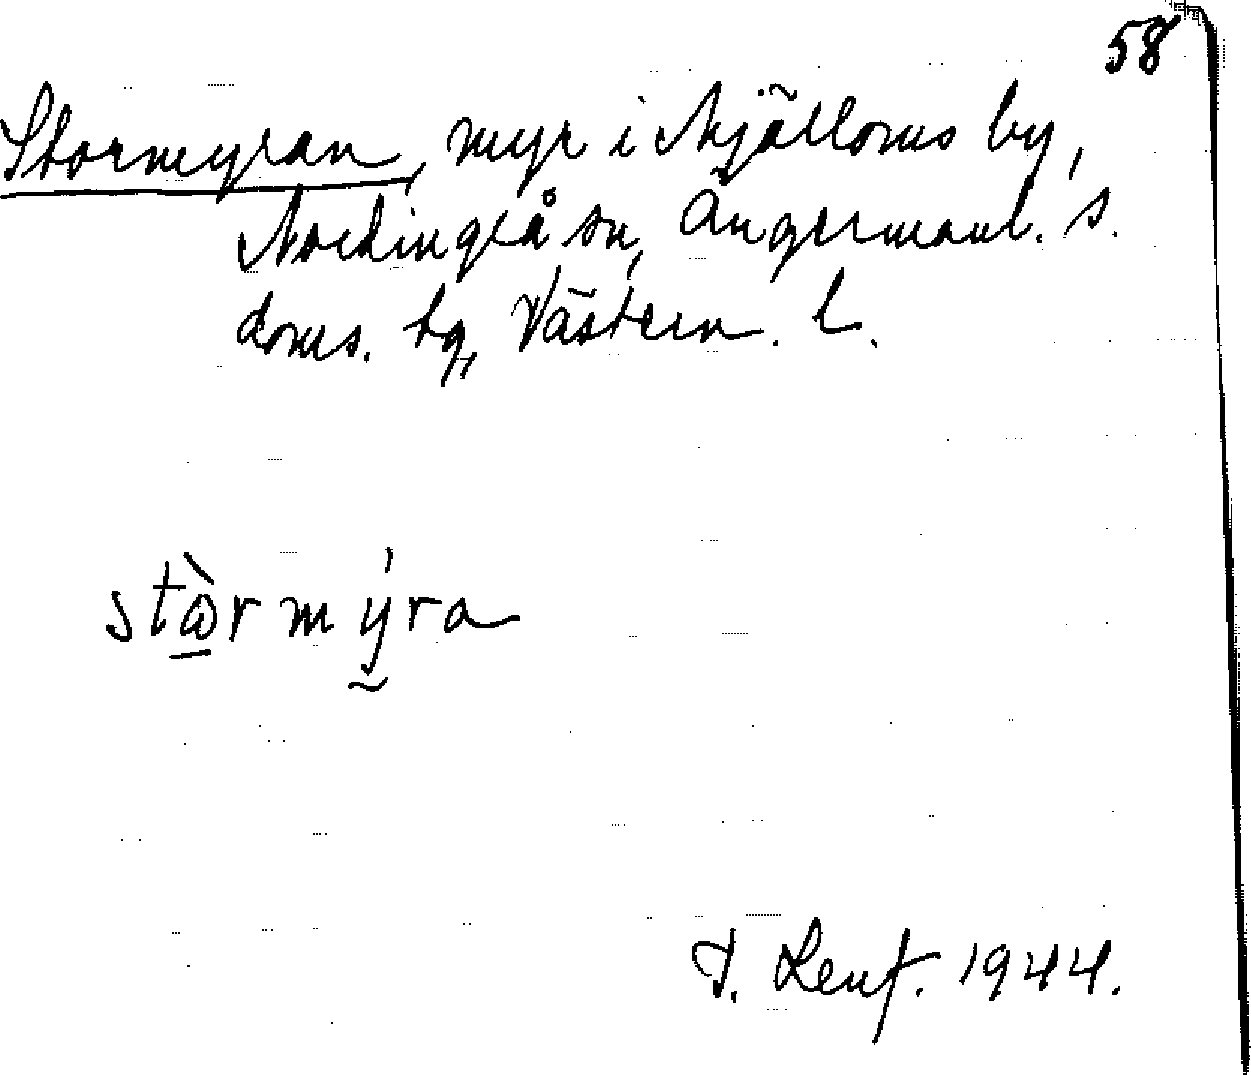 58
Stormyran, myr i Mjälloms by,
Nordingrå sn, Ångermanl. s.
doms. tg, Västern. l.
stɷ̀rmýra
J. Lenf. 1944.